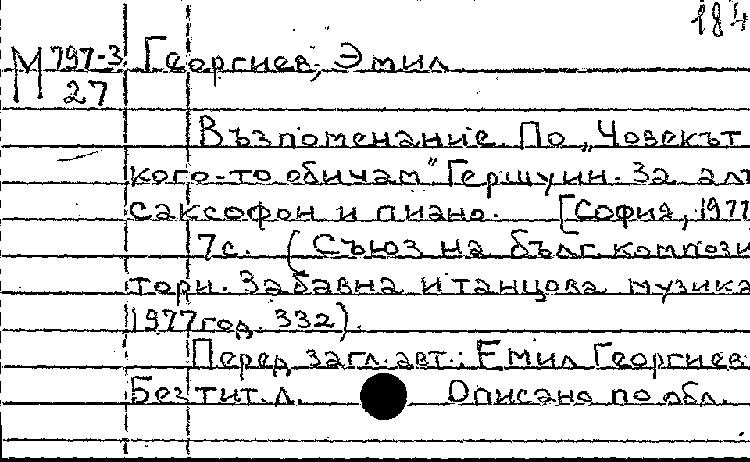 184
М 797-3 Георгиев, Эмил
27
Възпоменание. По „Човекът
кого-то обичам" Гершуин. За алт
саксофон и пиано. [София, 1977
7с. (Съюз на бълг. компози
тори. Забавна и танцова музика
1977 год. 332).
Перед загл. авт.: Емил Георгиев
Без тит. л. Описано по обл.